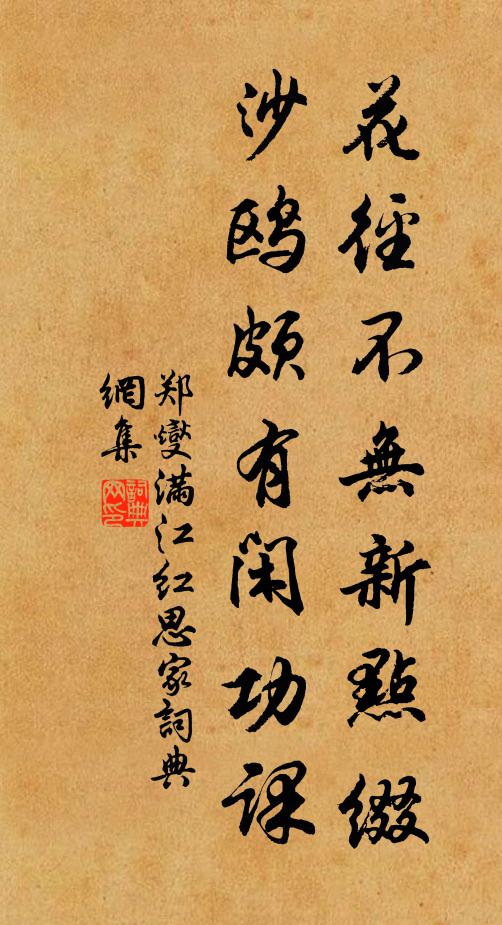 花徑不無新點綴
沙鸥頗有閑功課
郑燮满江红思家詞典
網集
詞典
网印